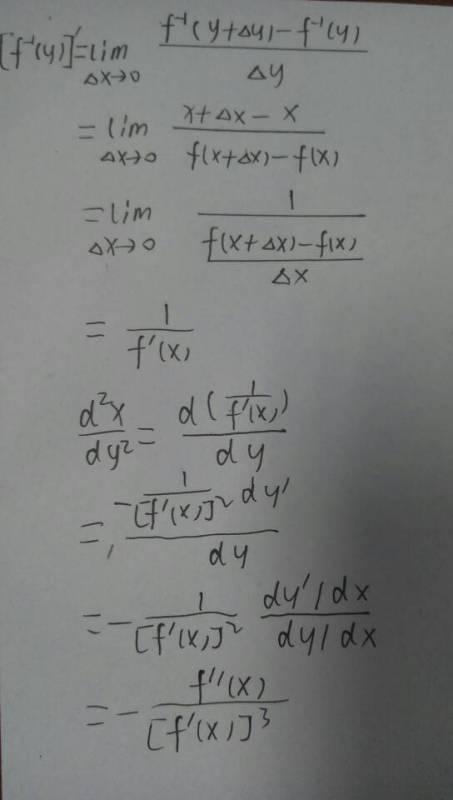 [f⁻¹(y)]'=lim_{Δx→0} \frac{f⁻¹(y+Δy)-f⁻¹(y)}{Δy}
=lim_{Δx→0} \frac{x+Δx-x}{f(x+Δx)-f(x)}
=lim_{Δx→0} \frac{1}{\frac{f(x+Δx)-f(x)}{Δx}}
= \frac{1}{f'(x)}
\frac{d²x}{dy²} = \frac{d(\frac{1}{f'(x)})}{dy}
= \frac{-\frac{1}{[f'(x)]²}dy'}{dy}
=-\frac{1}{[f'(x)]²} \frac{dy'/dx}{dy/dx}
=-\frac{f''(x)}{[f'(x)]³}